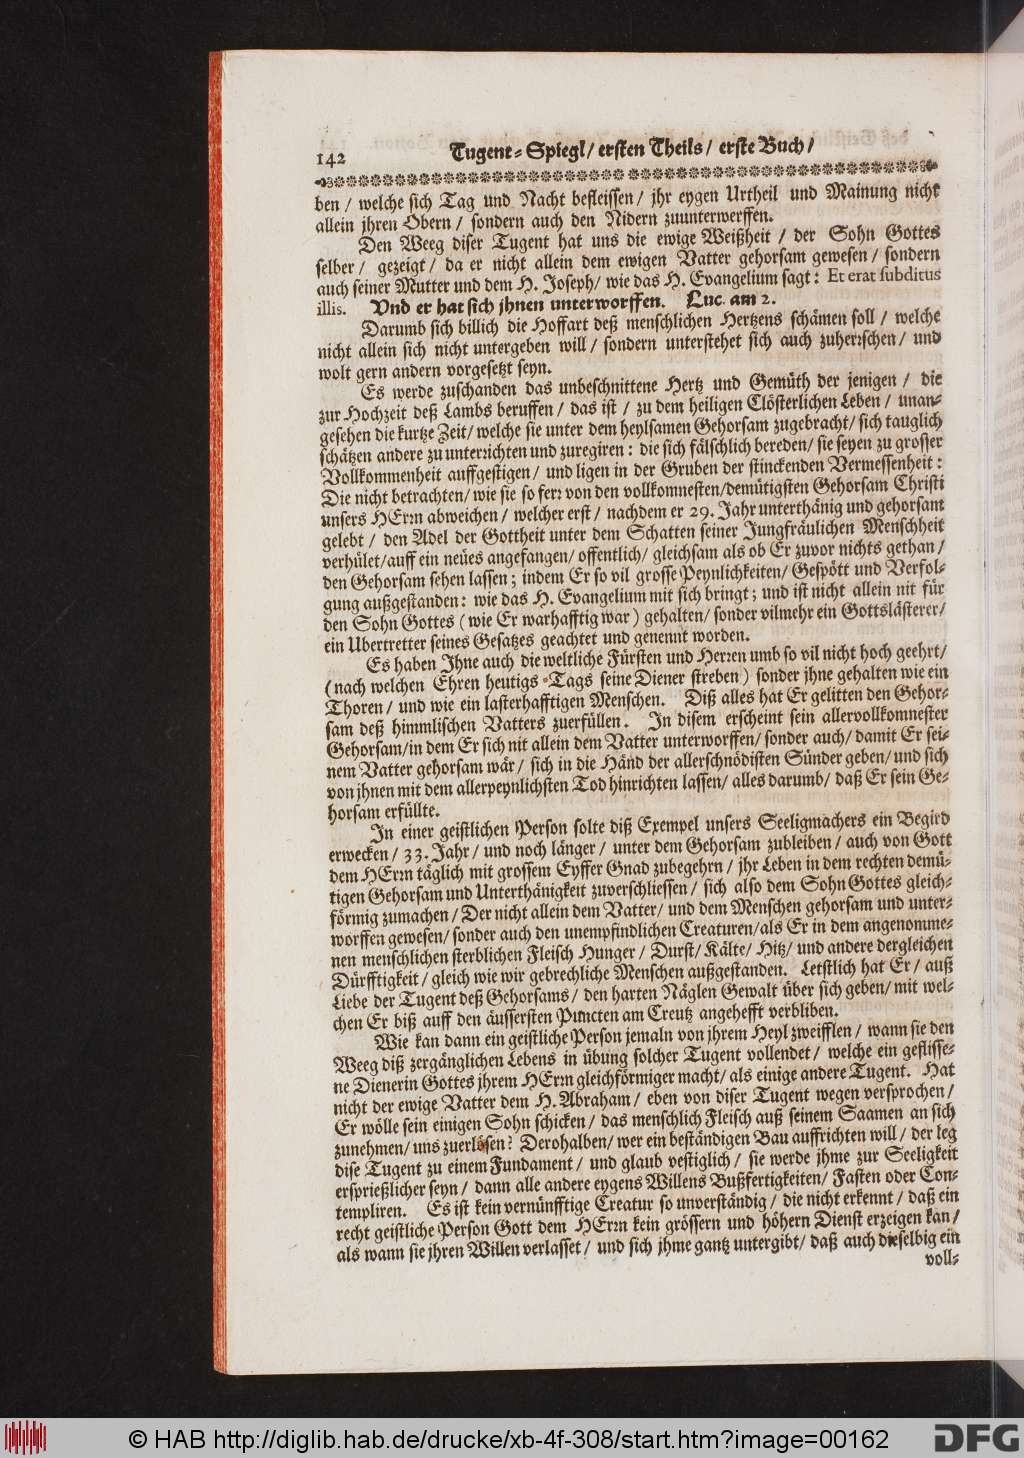 142 Tugent-Spiegl/ ersten Theils/ erste Buch/
ben / welche sich Tag und Nacht befleissen / jhr eygen Urtheil und Mainung nicht
allein jhren Obern / sondern auch den Nidern zuunterwerffen.
Den Weeg diser Tugent hat uns die ewige Weißheit / der Sohn Gottes
selber / gezeigt / da er nicht allein dem ewigen Vatter gehorsam gewesen / sondern
auch seiner Mutter und dem H. Joseph/ wie das H. Evangelium sagt: Et erat subditus
illis. Und er hat sich jhnen unterworffen. Luc. am 2.
Darumb sich billich die Hoffart deß menschlichen Hertzens schämen soll / welche
nicht allein sich nicht untergeben will / sondern unterstehet sich auch zuherrschen / und
wolt gern andern vorgesetzt seyn.
Es werde zuschanden das unbeschnittene Hertz und Gemüth der jenigen / die
zur Hochzeit deß Lambs beruffen / das ist / zu dem heiligen Clösterlichen Leben / unan-
gesehen die kurtze Zeit/ welche sie unter dem heylsamen Gehorsam zugebracht/ sich tauglich
schätzen andere zu unterrichten und zuregiren: die sich fälschlich bereden/ sie seyen zu grosser
Vollkommenheit auffgestigen / und ligen in der Gruben der stinckenden Vermessenheit:
Die nicht betrachten/ wie sie so ferr von den vollkomnesten/demütigsten Gehorsam Christi
unsers HErrn abweichen / welcher erst / nachdem er 29. Jahr unterthänig und gehorsam
gelebt / den Adel der Gottheit unter dem Schatten seiner Jungfräulichen Menschheit
verhület/auff ein neües angefangen/ offentlich/ gleichsam als ob Er zuvor nichts gethan /
den Gehorsam sehen lassen; indem Er so vil grosse Peynlichkeiten/ Gespött und Verfol-
gung außgestanden: wie das H. Evangelium mit sich bringt; und ist nicht allein nit für
den Sohn Gottes (wie Er warhafftig war) gehalten/ sonder vilmehr ein Gottslästerer/
ein Ubertretter seines Gesatzes geachtet und genennt worden.
Es haben Ihne auch die weltliche Fürsten und Herren umb so vil nicht hoch geehrt/
(nach welchen Ehren heutigs-Tags seine Diener streben) sonder jhne gehalten wie ein
Thoren / und wie ein lasterhafftigen Menschen. Diß alles hat Er gelitten den Gehor-
sam deß himmlischen Vatters zuerfüllen. In disem erscheint sein allervollkomnester
Gehorsam/in dem Er sich nit allein dem Vatter unterworffen/ sonder auch/ damit Er sei-
nem Vatter gehorsam wär / sich in die Händ der allerschnödisten Sünder geben/ und sich
von jhnen mit dem allerpeynlichsten Tod hinrichten lassen/ alles darumb/ daß Er sein Ge-
horsam erfüllte.
In einer geistlichen Person solte diß Exempel unsers Seeligmachers ein Begird
erwecken / 33. Jahr / und noch länger / unter dem Gehorsam zubleiben / auch von Gott
dem HErrn täglich mit grossem Eyffer Gnad zubegehrn / jhr Leben in dem rechten demü-
tigen Gehorsam und Unterthänigkeit zuverschliessen / sich also dem Sohn Gottes gleich-
förmig zumachen / Der nicht allein dem Vatter/ und dem Menschen gehorsam und unter-
worffen gewesen/ sonder auch den unempfindlichen Creaturen/als Er in dem angenomme-
nen menschlichen sterblichen Fleisch Hunger / Durst/ Kälte/ Hitz/ und andere dergleichen
Dürfftigkeit / gleich wie wir gebrechliche Menschen außgestanden. Letstlich hat Er / auß
Liebe der Tugent deß Gehorsams / den harten Näglen Gewalt über sich geben/ mit wel-
chen Er biß auff den äussersten Puncten am Creutz angehefft verbliben.
Wie kan dann ein geistliche Person jemaln von jhrem Heyl zweifflen / wann sie den
Weeg diß zergänglichen Lebens in übung solcher Tugent vollendet / welche ein geflisse-
ne Dienerin Gottes jhrem HErrn gleichförmiger macht/ als einige andere Tugent. Hat
nicht der ewige Vatter dem H. Abraham / eben von diser Tugent wegen versprochen /
Er wölle sein einigen Sohn schicken / das menschlich Fleisch auß seinem Saamen an sich
zunehmen/ uns zuerlösen? Derohalben/ wer ein beständigen Bau auffrichten will / der leg
dise Tugent zu einem Fundament / und glaub vestiglich / sie werde jhme zur Seeligkeit
ersprießlicher seyn / dann alle andere eygens Willens Bußfertigkeiten/ Fasten oder Con-
templiren. Es ist kein vernünfftige Creatur so unverständig / die nicht erkennt / daß ein
recht geistliche Person Gott dem HErrn kein grössern und höhern Dienst erzeigen kan/
als wann sie jhren Willen verlasset / und sich jhme gantz untergibt/ daß auch dieselbig ein
voll-
© HAB http://diglib.hab.de/drucke/xb-4f-308/start.htm?image=00162
DFG